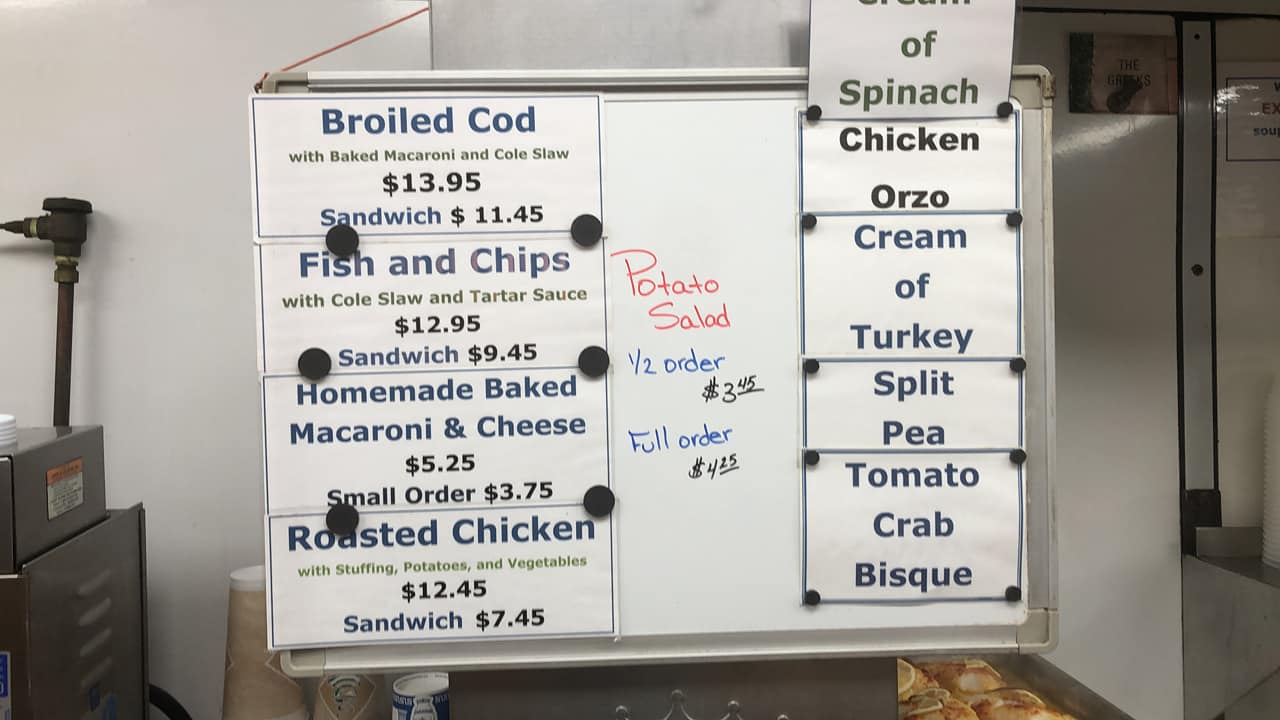 Broiled Cod
with Baked Macaroni and Cole Slaw
$13.95
Sandwich $ 11.45
Fish and Chips
with Cole Slaw and Tartar Sauce
$12.95
Sandwich $9.45
Homemade Baked
Macaroni & Cheese
$5.25
Small Order $3.75
Roasted Chicken
with Stuffing, Potatoes, and Vegetables
$12.45
Sandwich $7.45
Potato
Salad
1/2 order
$3 45
Full order
$4 25
Cream
of
Spinach
Chicken
Orzo
Cream
of
Turkey
Split
Pea
Tomato
Crab
Bisque
THE
GREEKS